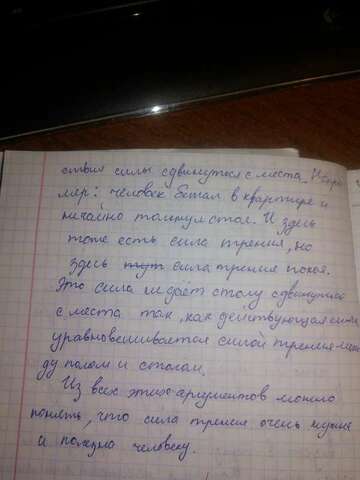 ствия силы сдвинуться с места. Напри
мер: человек бегал в квартире и
нечайно толкнул стол. И здесь
тоже есть сила трения, но
здесь тут сила трения покоя.
Это сила не даёт столу сдвинуться
с места так, как действующая сила
уравновешивается силой трения меж
ду полом и столом.
Из всех этих аргументов можно
понять, что сила трения очень нужна
и полезна человеку.